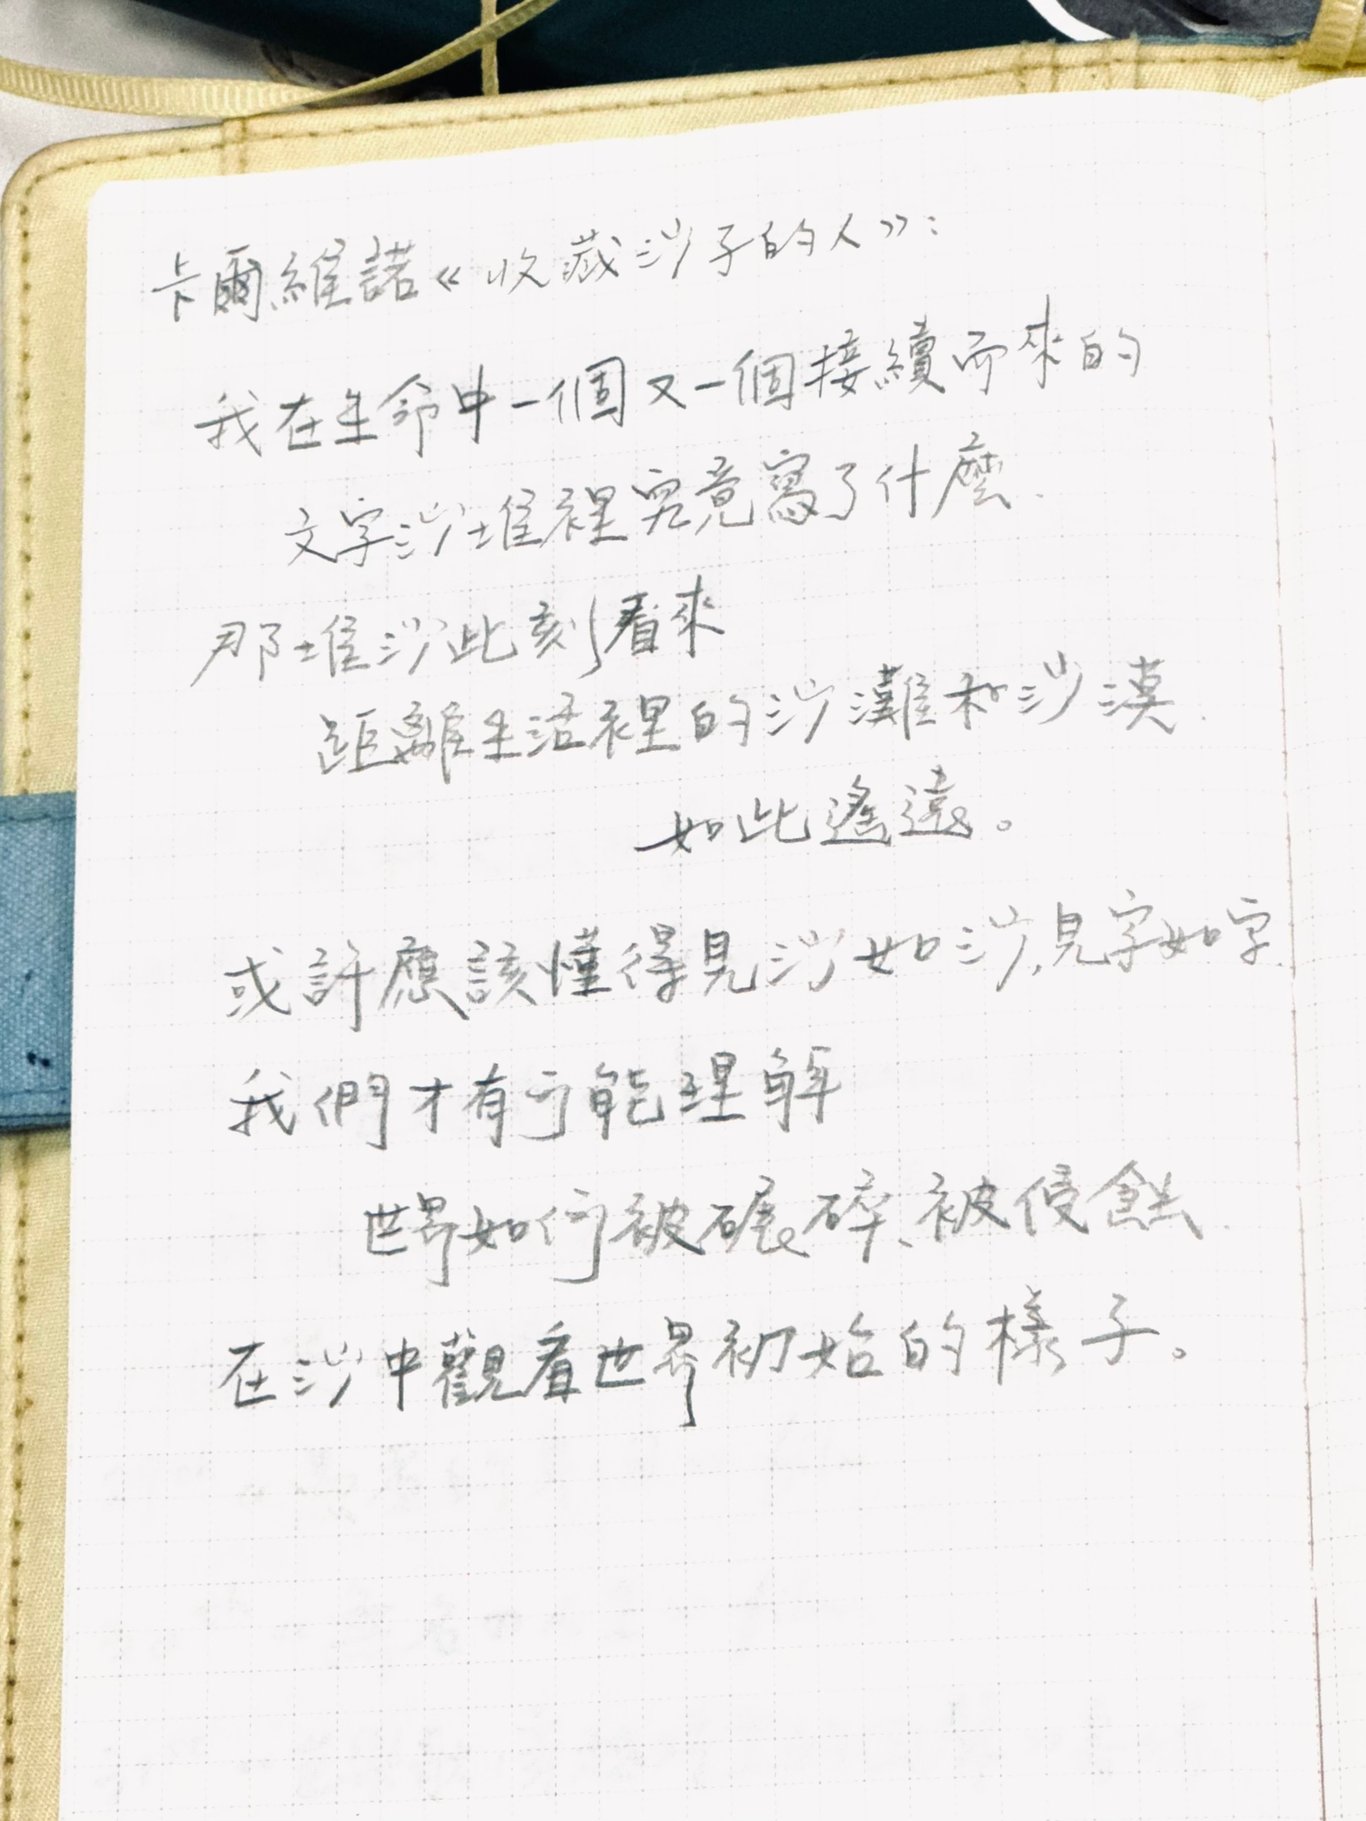 卡爾維諾《收藏沙子的人》：
我在生命中一個又一個接續而來的
文字沙堆裡究竟寫了什麼.
那堆沙此刻看來
距離生活裡的沙灘和沙漠.
如此遙遠。
或許應該懂得見沙如沙,見字如字.
我們才有可能理解
世界如何被碾碎、被侵蝕.
在沙中觀看世界初始的樣子。